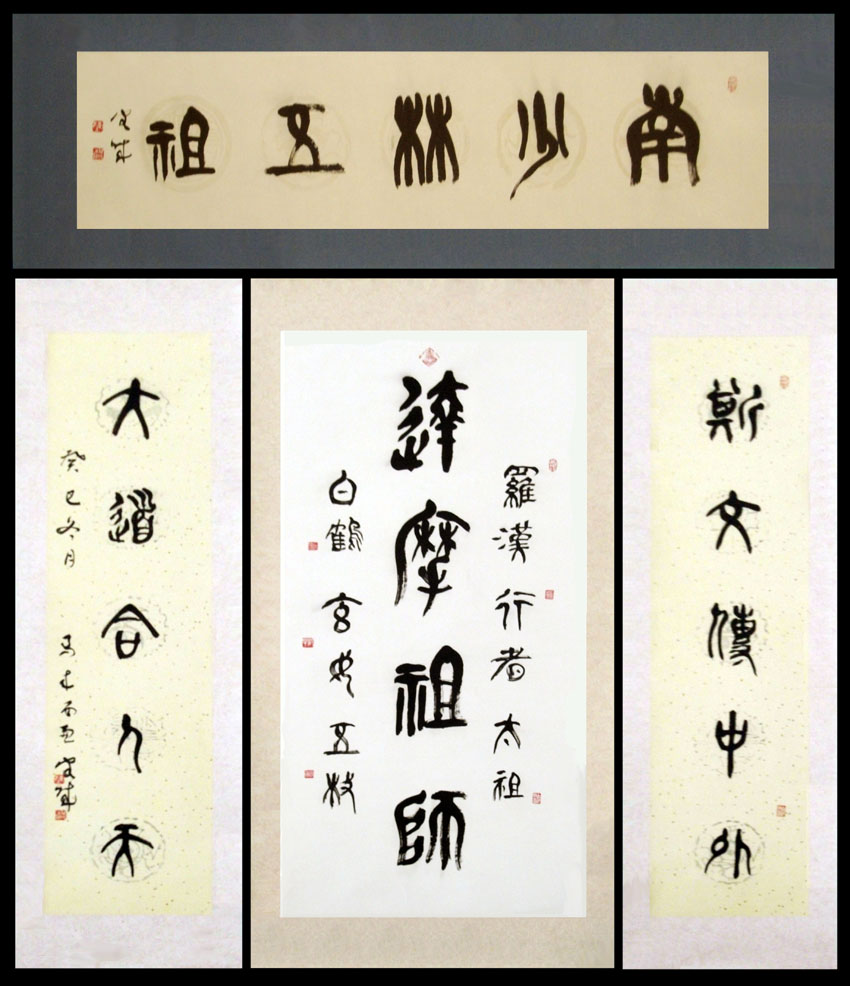 南少林五祖
斯文傳中外
羅漢 行者 太祖
達摩祖師
白鶴 玄女 五枚
大道合人天
癸巳冬月 马来西亚